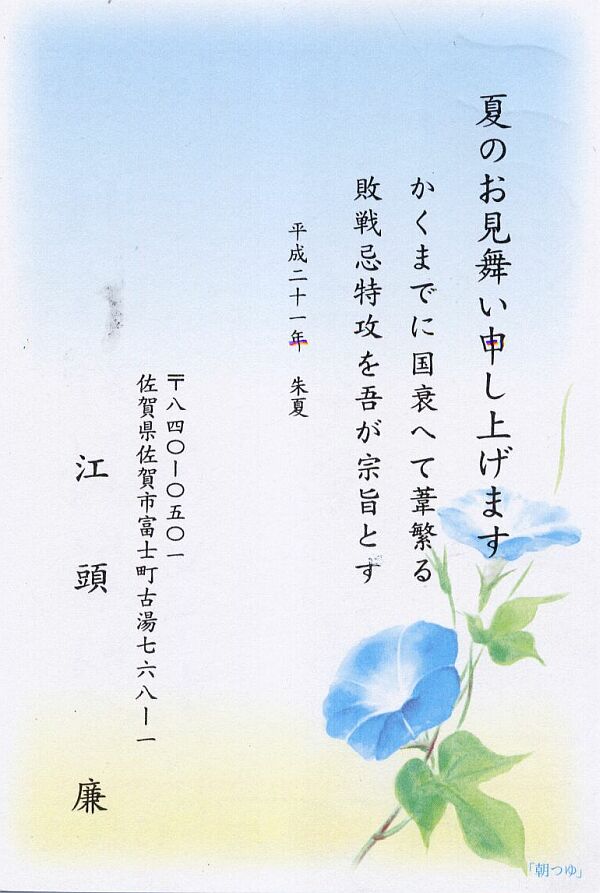 夏のお見舞い申し上げます
かくまでに国衰へて葦繁る
敗戦忌特攻を吾が宗旨とす
平成二十一年　朱夏
〒八四〇ー〇五〇一
佐賀県佐賀市富士町古湯七六八ー一
江頭廉
「朝つゆ」